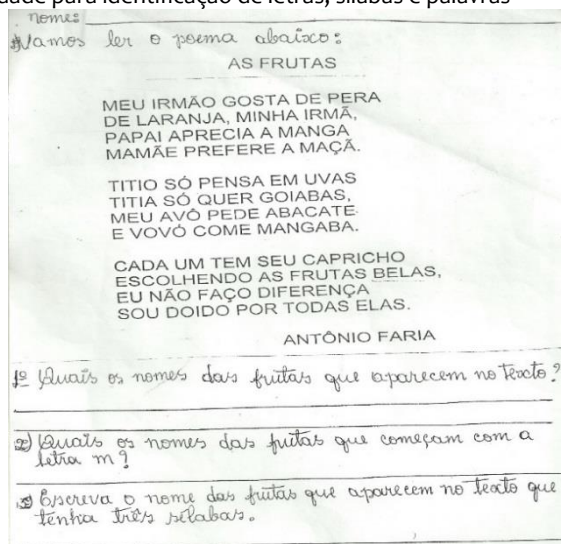 dade para identificação de letras, sílabas e palavras
nomes
Vamos ler o poema abaixo:
AS FRUTAS
MEU IRMÃO GOSTA DE PERA
DE LARANJA, MINHA IRMÃ,
PAPAI APRECIA A MANGA
MAMÃE PREFERE A MAÇÃ.
TITIO SÓ PENSA EM UVAS
TITIA SÓ QUER GOIABAS,
MEU AVÔ PEDE ABACATE
E VOVÓ COME MANGABA.
CADA UM TEM SEU CAPRICHO
ESCOLHENDO AS FRUTAS BELAS,
EU NÃO FAÇO DIFERENÇA
SOU DOIDO POR TODAS ELAS.
ANTÔNIO FARIA
1º Quais os nomes das frutas que aparecem no texto?
2) Quais os nomes das frutas que começam com a
letra m?
3) Escreva o nome das frutas que aparecem no texto que
tenha três sílabas.